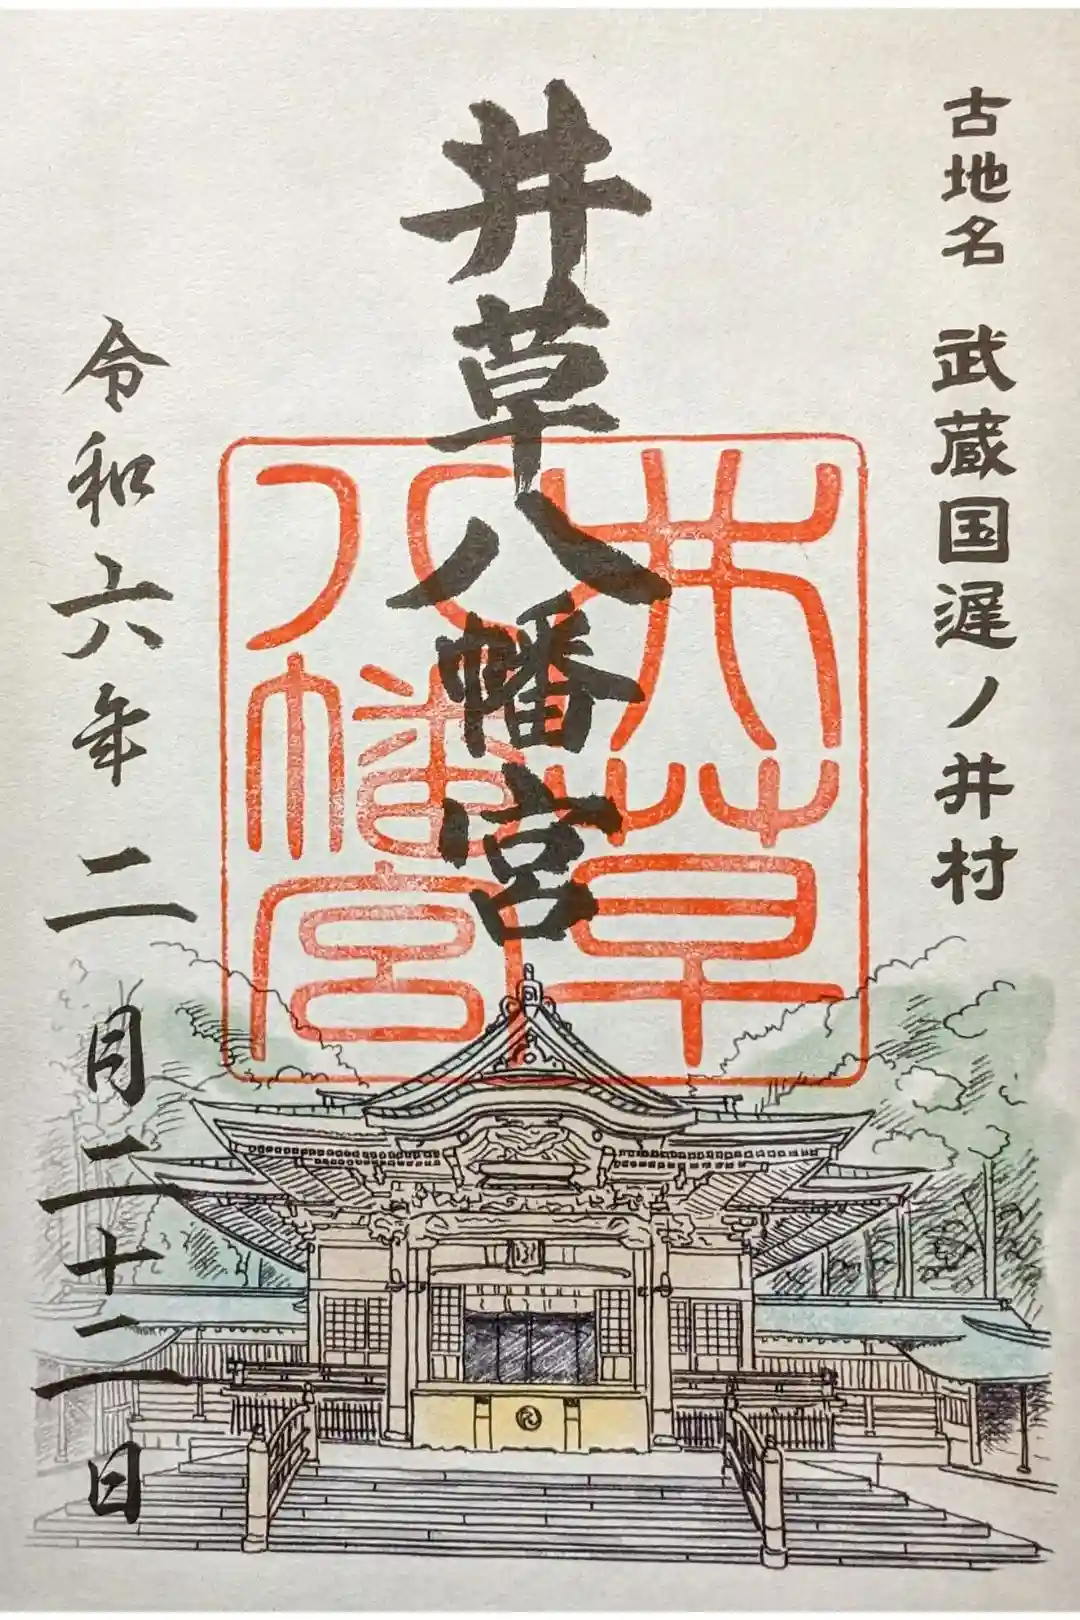 古地名 武蔵国遅ノ井村
井草八幡宮
井草
八幡宮
令和六年二月二十二日